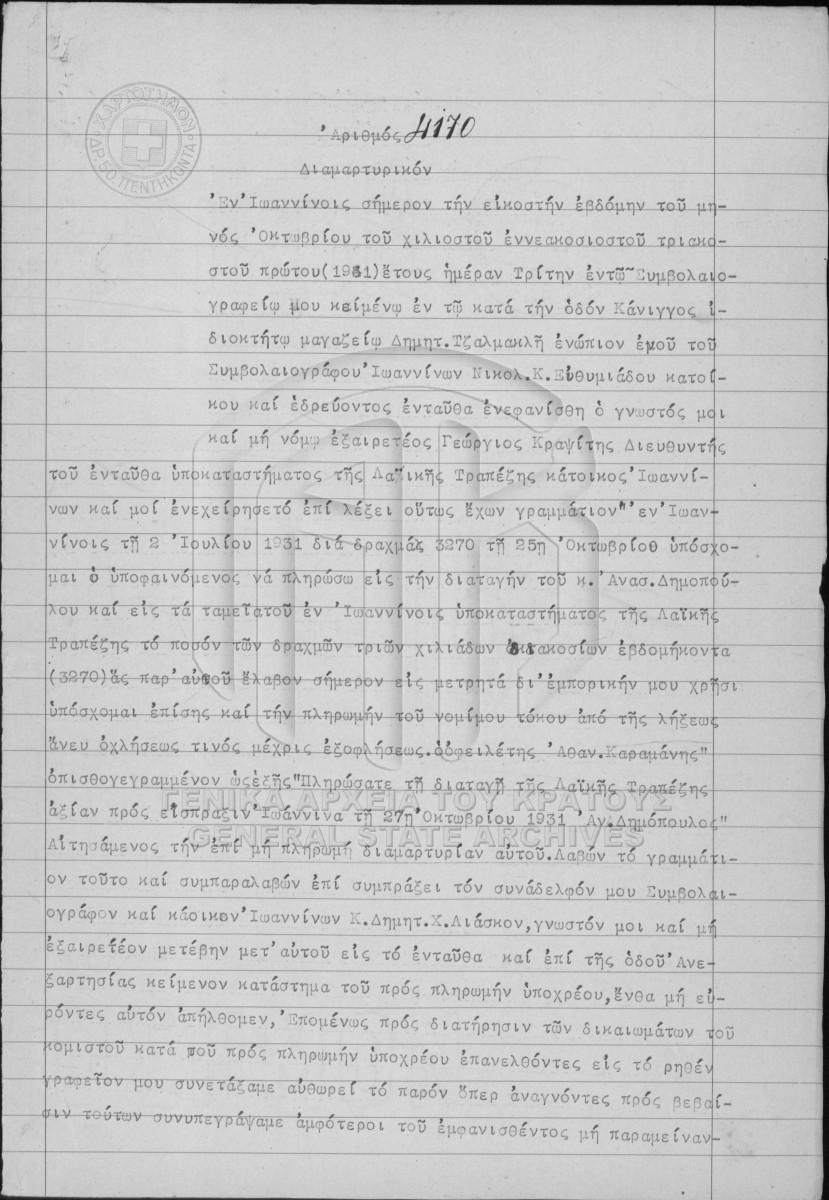 ΧΑΡΤΟΣΗΜΟΝ
ΔΡ. 50. ΠΕΝΤΗΚΟΝΤΑ
Ἀριθμός 4170
Διαμαρτυρικόν
Ἐν Ἰωαννίνοις σήμερον τήν εἰκοστήν ἑβδόμην τοῦ μη-
νός Ὀκτωβρίου τοῦ χιλιοστοῦ ἐννεακοσιοστοῦ τριακο-
στοῦ πρώτου(1931)ἔτους ἡμέραν Τρίτην ἐντῶ Συμβολαιο-
γραφείῳ μου κειμένῳ ἐν τῷ κατά τήν ὁδόν Κάνιγγος ἰ-
διοκτήτῳ μαγαζείῳ Δημητ.Τζαλμακλῆ ἐνώπιον ἐμοῦ τοῦ
Συμβολαιογράφου Ἰωαννίνων Νικολ.Κ.Εὐθυμιάδου κατοί-
κου καί ἑδρεύοντος ἐνταῦθα ἐνεφανίσθη ὁ γνωστός μοι
καί μή νόμῳ ἐξαιρετέος Γεώργιος Κραψίτης Διευθυντής
τοῦ ἐνταῦθα ὑποκαταστήματος τῆς Λαϊκῆς Τραπέζης κάτοικος Ἰωαννί-
νων καί μοί ἐνεχείρησετό ἐπί λέξει οὕτως ἔχων γραμμάτιον" Ἐν Ἰωαν-
νίνοις τῇ 2 Ἰουλίου 1931 διά δραχμάς 3270 τῇ 25ῃ Ὀκτωβρίου ὑπόσχο-
μαι ὁ ὑποφαινόμενος νά πληρώσω εἰς τήν διαταγήν τοῦ κ. Ἀνασ.Δημοπού-
λου καί εἰς τά ταμεῖατοῦ ἐν Ἰωαννίνοις ὑποκαταστήματος τῆς Λαϊκῆς
Τραπέζης τό ποσόν τῶν δραχμῶν τριῶν χιλιάδων διακοσίων ἑβδομήκοντα
(3270)ἅς παρ'αὐτοῦ ἔλαβον σήμερον εἰς μετρητά δι'ἐμπορικήν μου χρῆσι
ὑπόσχομαι ἐπίσης καί τήν πληρωμήν τοῦ νομίμου τόκου ἀπό τῆς λήξεως
ἄνευ ὀχλήσεως τινός μέχρις ἐξοφλήσεως.ὁὀφειλέτης Ἀθαν.Καραμάνης"
ὀπισθογεγραμμένον ὡςἑξῆς"Πληρώσατε τῇ διαταγῇ τῆς Λαϊκῆς Τραπέζης
ἀξίαν πρός εἴσπραξιν Ἰωάννινα τῇ 27ῃ Ὀκτωβρίου 1931 Ἀν.Δημόπουλος"
Αἰτησάμενος τήν ἐπί μή πληρωμῇ διαμαρτυρίαν αὐτοῦ.Λαβών τό γραμμάτι-
ον τοῦτο καί συμπαραλαβών ἐπί συμπράξει τόν συνάδελφόν μου Συμβολαι-
ογράφον καί κάοικον Ἰωαννίνων Κ.Δημητ.Χ.Λιάσκον,γνωστόν μοι καί μή
ἐξαιρετέον μετέβην μετ'αὐτοῦ εἰς τό ἐνταῦθα καί ἐπί τῆς ὁδοῦ Ἀνε-
ξαρτησίας κείμενον κατάστημα τοῦ πρός πληρωμήν ὑποχρέου,ἔνθα μή εὑ-
ρόντες αὐτόν ἀπήλθομεν, Ἑπομένως πρός διατήρησιν τῶν δικαιωμάτων τοῦ
κομιστοῦ κατά τοῦ πρός πληρωμήν ὑποχρέου ἐπανελθόντες εἰς τό ρηθέν
γραφεῖον μου συνετάξαμε αὐθωρεί τό παρόν ὅπερ ἀναγνόντες πρός βεβαί-
σιν τούτων συνυπεγράψαμε ἀμφότεροι τοῦ ἐμφανισθέντος μή παραμείναν-
ΓΕΝΙΚΑ ΑΡΧΕΙΑ ΤΟΥ ΚΡΑΤΟΥΣ
GENERAL STATE ARCHIVES